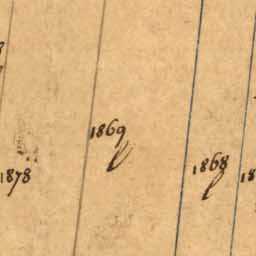 1869
1868
1878
18